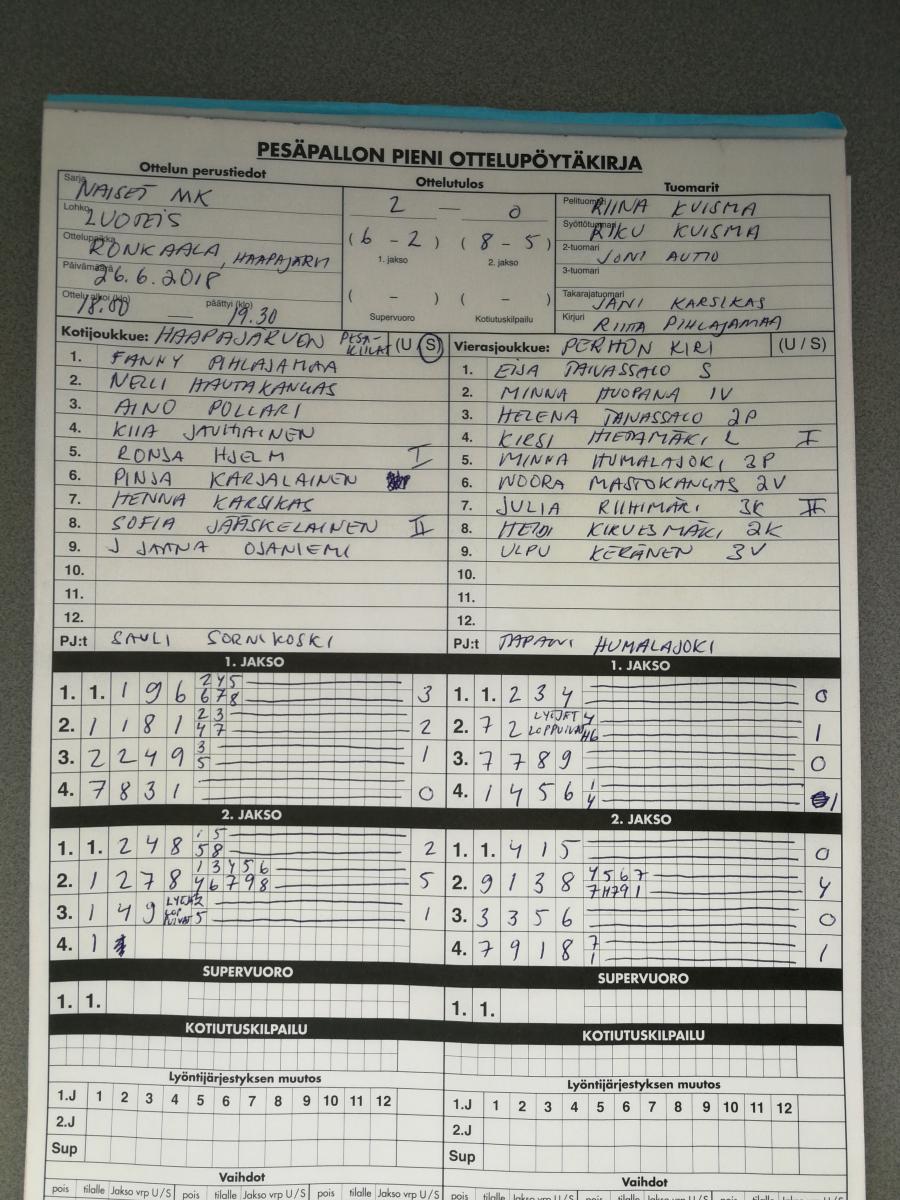 PESÄPALLON PIENI OTTELUPÖYTÄKIRJA
Ottelun perustiedot
Ottelutulos
Tuomarit
Sarja NAISET MK
Lohko LUOTEIS
Ottelupaikka RONKAALA, HAAPAJÄRVI
Päivämäärä 26.6.2018
Ottelu alkoi (klo) 18.00 — päättyi (klo) 19.30
2 — 0
(6 - 2) (8 - 5)
1. jakso 2. jakso
( - ) ( - )
Supervuoro Kotiutuskilpailu
Pelituomari RIINA KUISMA
Syöttötuomari RIKU KUISMA
2-tuomari JONI AUTIO
3-tuomari
Takarajatuomari JANI KARSIKAS
Kirjuri RIITTA PIHLAJAMAA
Kotijoukkue: HAAPAJÄRVEN PESÄ-KIILAT (U / S)
1. FANNY PIHLAJAMAA
2. NELLI HAUTAKANGAS
3. AINO POLLARI
4. KIIA JAUHIAINEN
5. RONJA HJELM I
6. PINJA KARJALAINEN
7. HENNA KARSIKAS
8. SOFIA JÄÄSKELAINEN II
9. J JAANA OJANIEMI
10.
11.
12.
PJ:t SAULI SORNIKOSKI
Vierasjoukkue: PERHON KIRI (U / S)
1. EIJA TAIVASSALO S
2. MINNA HUOPANA 1V
3. HELENA TAIVASSALO 2P
4. KIRSI HIETAMÄKI L I
5. MINNA HUMALAJOKI 3P
6. NOORA MASTOKANGAS 2V
7. JULIA RIIHIMÄKI 3K II
8. HEIDI KIRVESMÄKI 2K
9. ULPU KERÄNEN 3V
10.
11.
12.
PJ:t TAPANI HUMALAJOKI
1. JAKSO
1. 1. 1 9 6 2 4 5 3
6 7 8
2. 1 1 8 1 2 3 2
4 7
3. 2 2 4 9 3 1
5
4. 7 8 3 1 0
1. JAKSO
1. 1. 2 3 4 0
2. 7 2 LYÖJÄT LOPPUIVAT 4 1
H6
3. 7 7 8 9 0
4. 1 4 5 6 1 1
4
2. JAKSO
1. 1. 2 4 8 1 5 2
5 8
2. 1 2 7 8 1 3 4 5 6 5
4 6 7 9 8
3. 1 4 9 LYÖJÄT LOPPUIVAT 2 1
5
4. 1
2. JAKSO
1. 1. 4 1 5 0
2. 9 1 3 8 4 5 6 7 4
7 H7 9 1
3. 3 3 5 6 0
4. 7 9 1 8 7 1
1
SUPERVUORO
1. 1.
SUPERVUORO
1. 1.
KOTIUTUSKILPAILU
KOTIUTUSKILPAILU
Lyöntijärjestyksen muutos
1.J 1 2 3 4 5 6 7 8 9 10 11 12
2.J
Sup
Lyöntijärjestyksen muutos
1.J 1 2 3 4 5 6 7 8 9 10 11 12
2.J
Sup
Vaihdot
pois tilalle Jakso vrp U / S pois tilalle Jakso vrp U / S pois tilalle Jakso vrp U / S
Vaihdot
pois tilalle Jakso vrp U / S pois tilalle Jakso vrp U / S pois tilalle Jakso vrp U / S